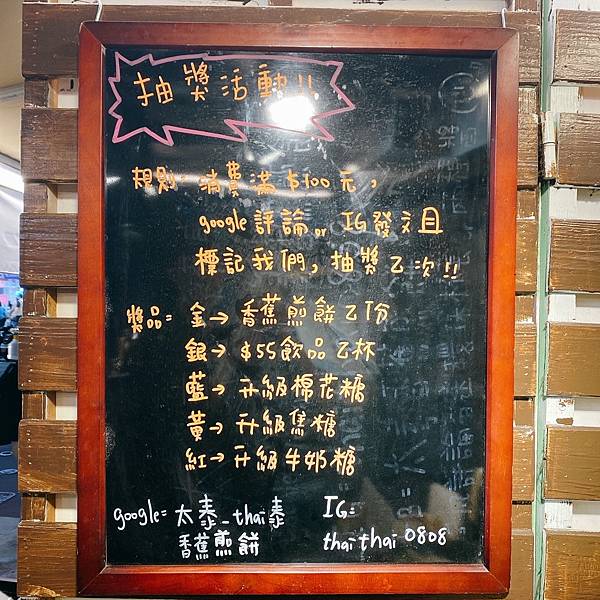 抽獎活動!!
規則: 消費滿 $100元,
google 評論 or IG發文且
標記我們, 抽獎乙次!!
獎品= 金→香蕉煎餅乙份
銀→$55飲品乙杯
藍→升級棉花糖
黃→升級焦糖
紅→升級牛奶糖
google= 太泰_thai泰
香蕉煎餅
IG=
thaithai0808